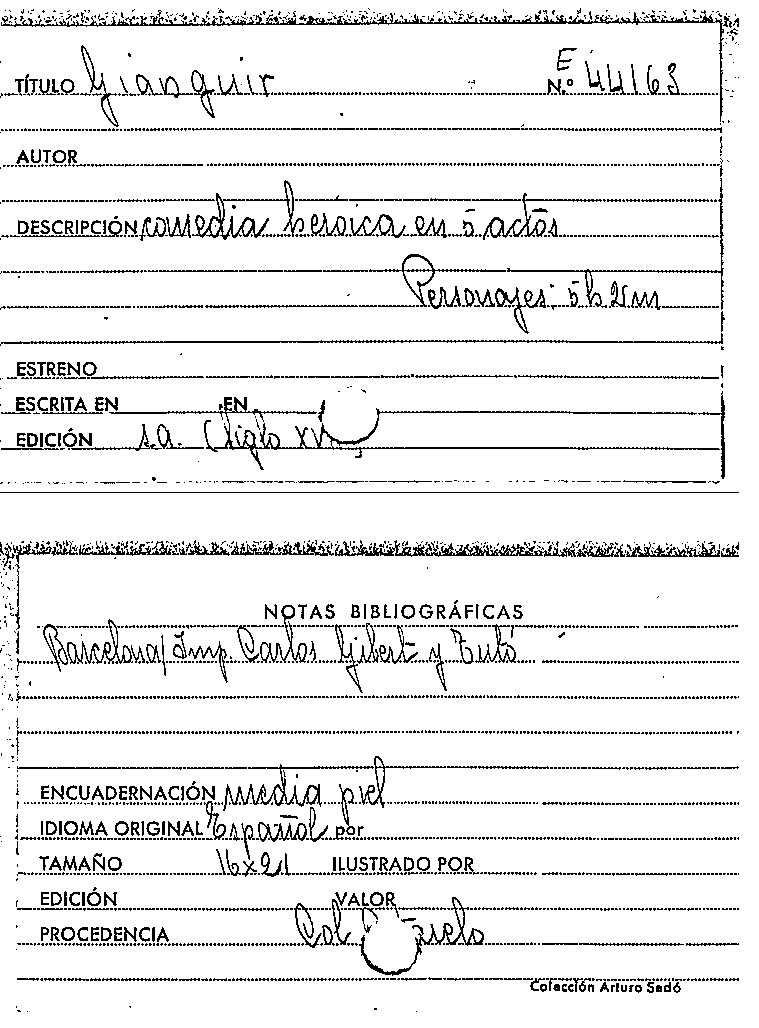 TÍTULO Gianguir E N.º 44163
AUTOR
DESCRIPCIÓN comedia heróica en 5 actos
Personajes: 5h 2m
ESTRENO
ESCRITA EN EN
EDICIÓN s.a. (Siglo
NOTAS BIBLIOGRÁFICAS
Barcelona/Imp. Carlos Gibert y Tutó
ENCUADERNACIÓN media piel
IDIOMA ORIGINAL Español por
TAMAÑO 16x21 ILUSTRADO POR
EDICIÓN VALOR
PROCEDENCIA Col.
Colección Arturo Sedó